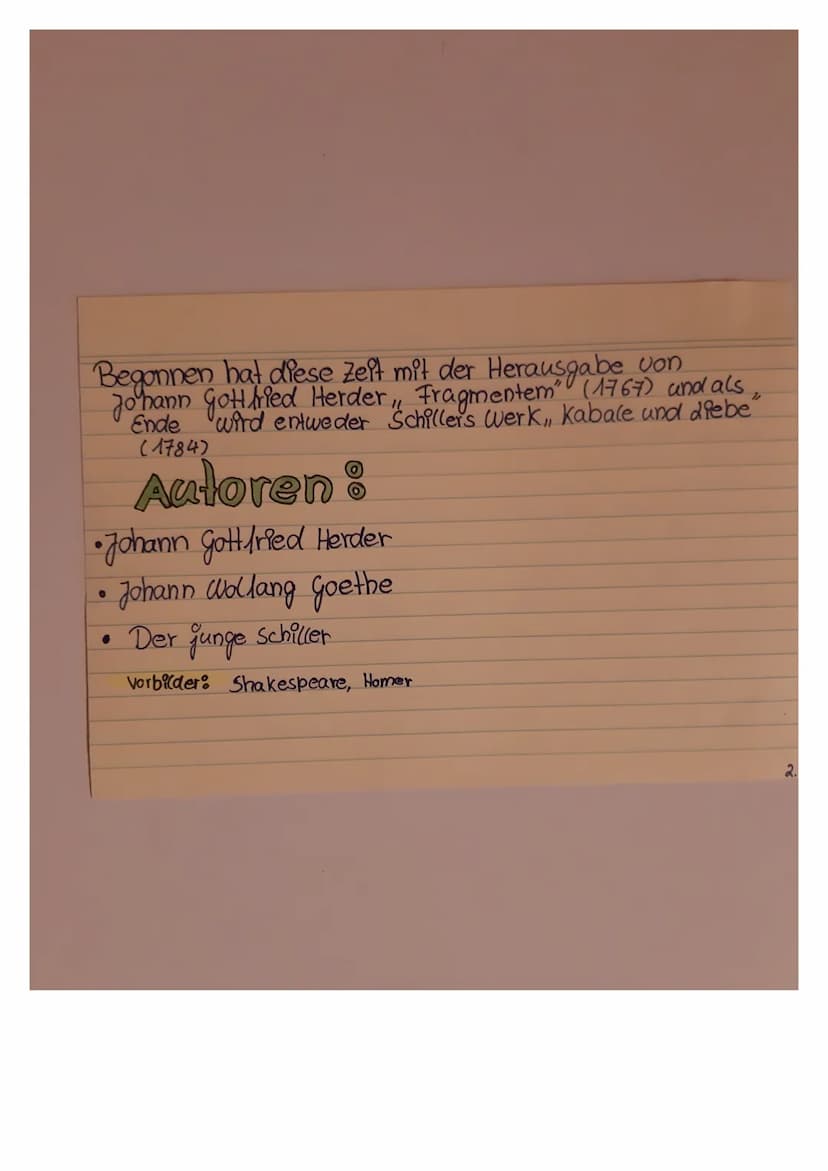 Begonnen hat diese Zeit mit der Herausgabe von
Johann Gottfried Herder „Fragmentem" (1767) und als
Ende wird entweder Schillers Werk „Kabale und Liebe"
(1784)
Autoren:
• Johann Gottfried Herder
• Johann Wolfang Goethe
• Der junge Schiller
Vorbilder: Shakespeare, Homer
2.